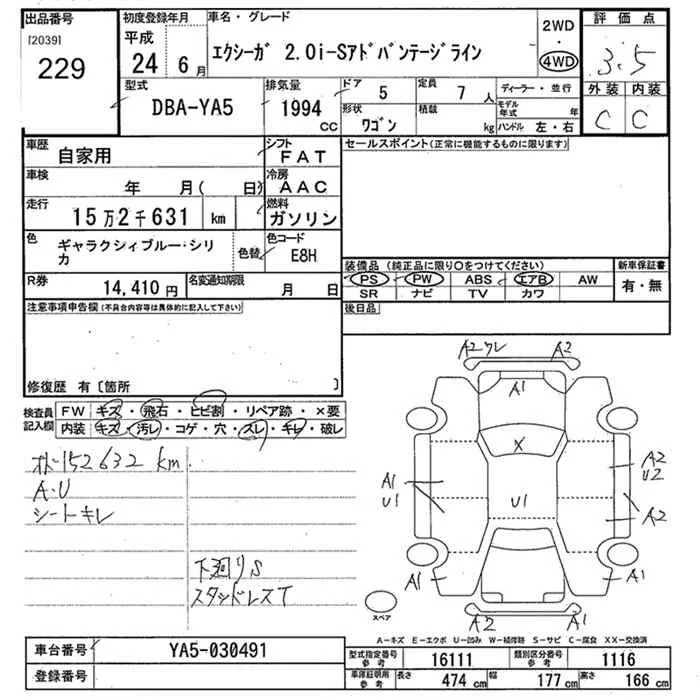 出品番号
[2039]
229
初度登録年月
平成
24 6月
車名・グレード
エクシーガ 2.0i-Sアドバンテージライン
2WD
4WD
評価点
3.5
外装 内装
C C
型式
DBA-YA5
排気量
1994 CC
ドア 5
定員 7 人
ディーラー・並行
形状 ワゴン
積載 kg
モデル年式 年
ハンドル 左・右
車歴 自家用
シフト FAT
車検 年 月( 日)
冷房 AAC
走行 15万2千631 km
燃料 ガソリン
色 ギャラクシィブルー・シリカ
色替
色コード E8H
R券 14,410 円
名変通知期限 月 日
セールスポイント(正常に機能するものに限ります)
装備品 (純正品に限り○をつけてください)
PS PW ABS エアB AW
SR ナビ TV カワ
新車保証書
有・無
後日品
注意事項申告欄(不具合内容等は具体的に記入して下さい)
修復歴 有〔箇所 〕
検査員記入欄
FW キズ・飛石・ヒビ割・リペア跡・×要
内装 キズ・汚レ・コゲ・穴・スレ・キレ・破レ
メーター152632 km
A・U
シートキレ
下廻りS
スタッドレスT
A2ワレ A2
A1
X
A1
U1
U1
A2
U2
A2
A1 A1
A2 A1
スペア
A−キズ E−エクボ U−凹み W−補修跡 S−サビ C−腐食 XX−交換済
車台番号 YA5-030491
登録番号
型式指定番号 参考 16111
類別区分番号 参考 1116
車庫証明用 参考 長さ 474 cm 幅 177 cm 高さ 166 cm